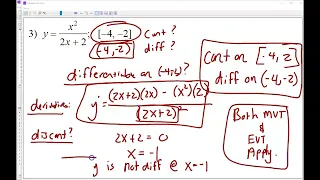 3) y = x²/(2x + 2); [-4, -2] Cont ?
(-4,-2) diff ?
differentiable on (-4,-2)?
derivative: y = ((2x+2)(2x) - (x²)(2))/(2x+2)²
discont? 2x+2 = 0
x = -1
y is not diff @ x=-1
Cont on [-4, 2]
diff on (-4,-2)
Both MVT
&
EVT
Apply.